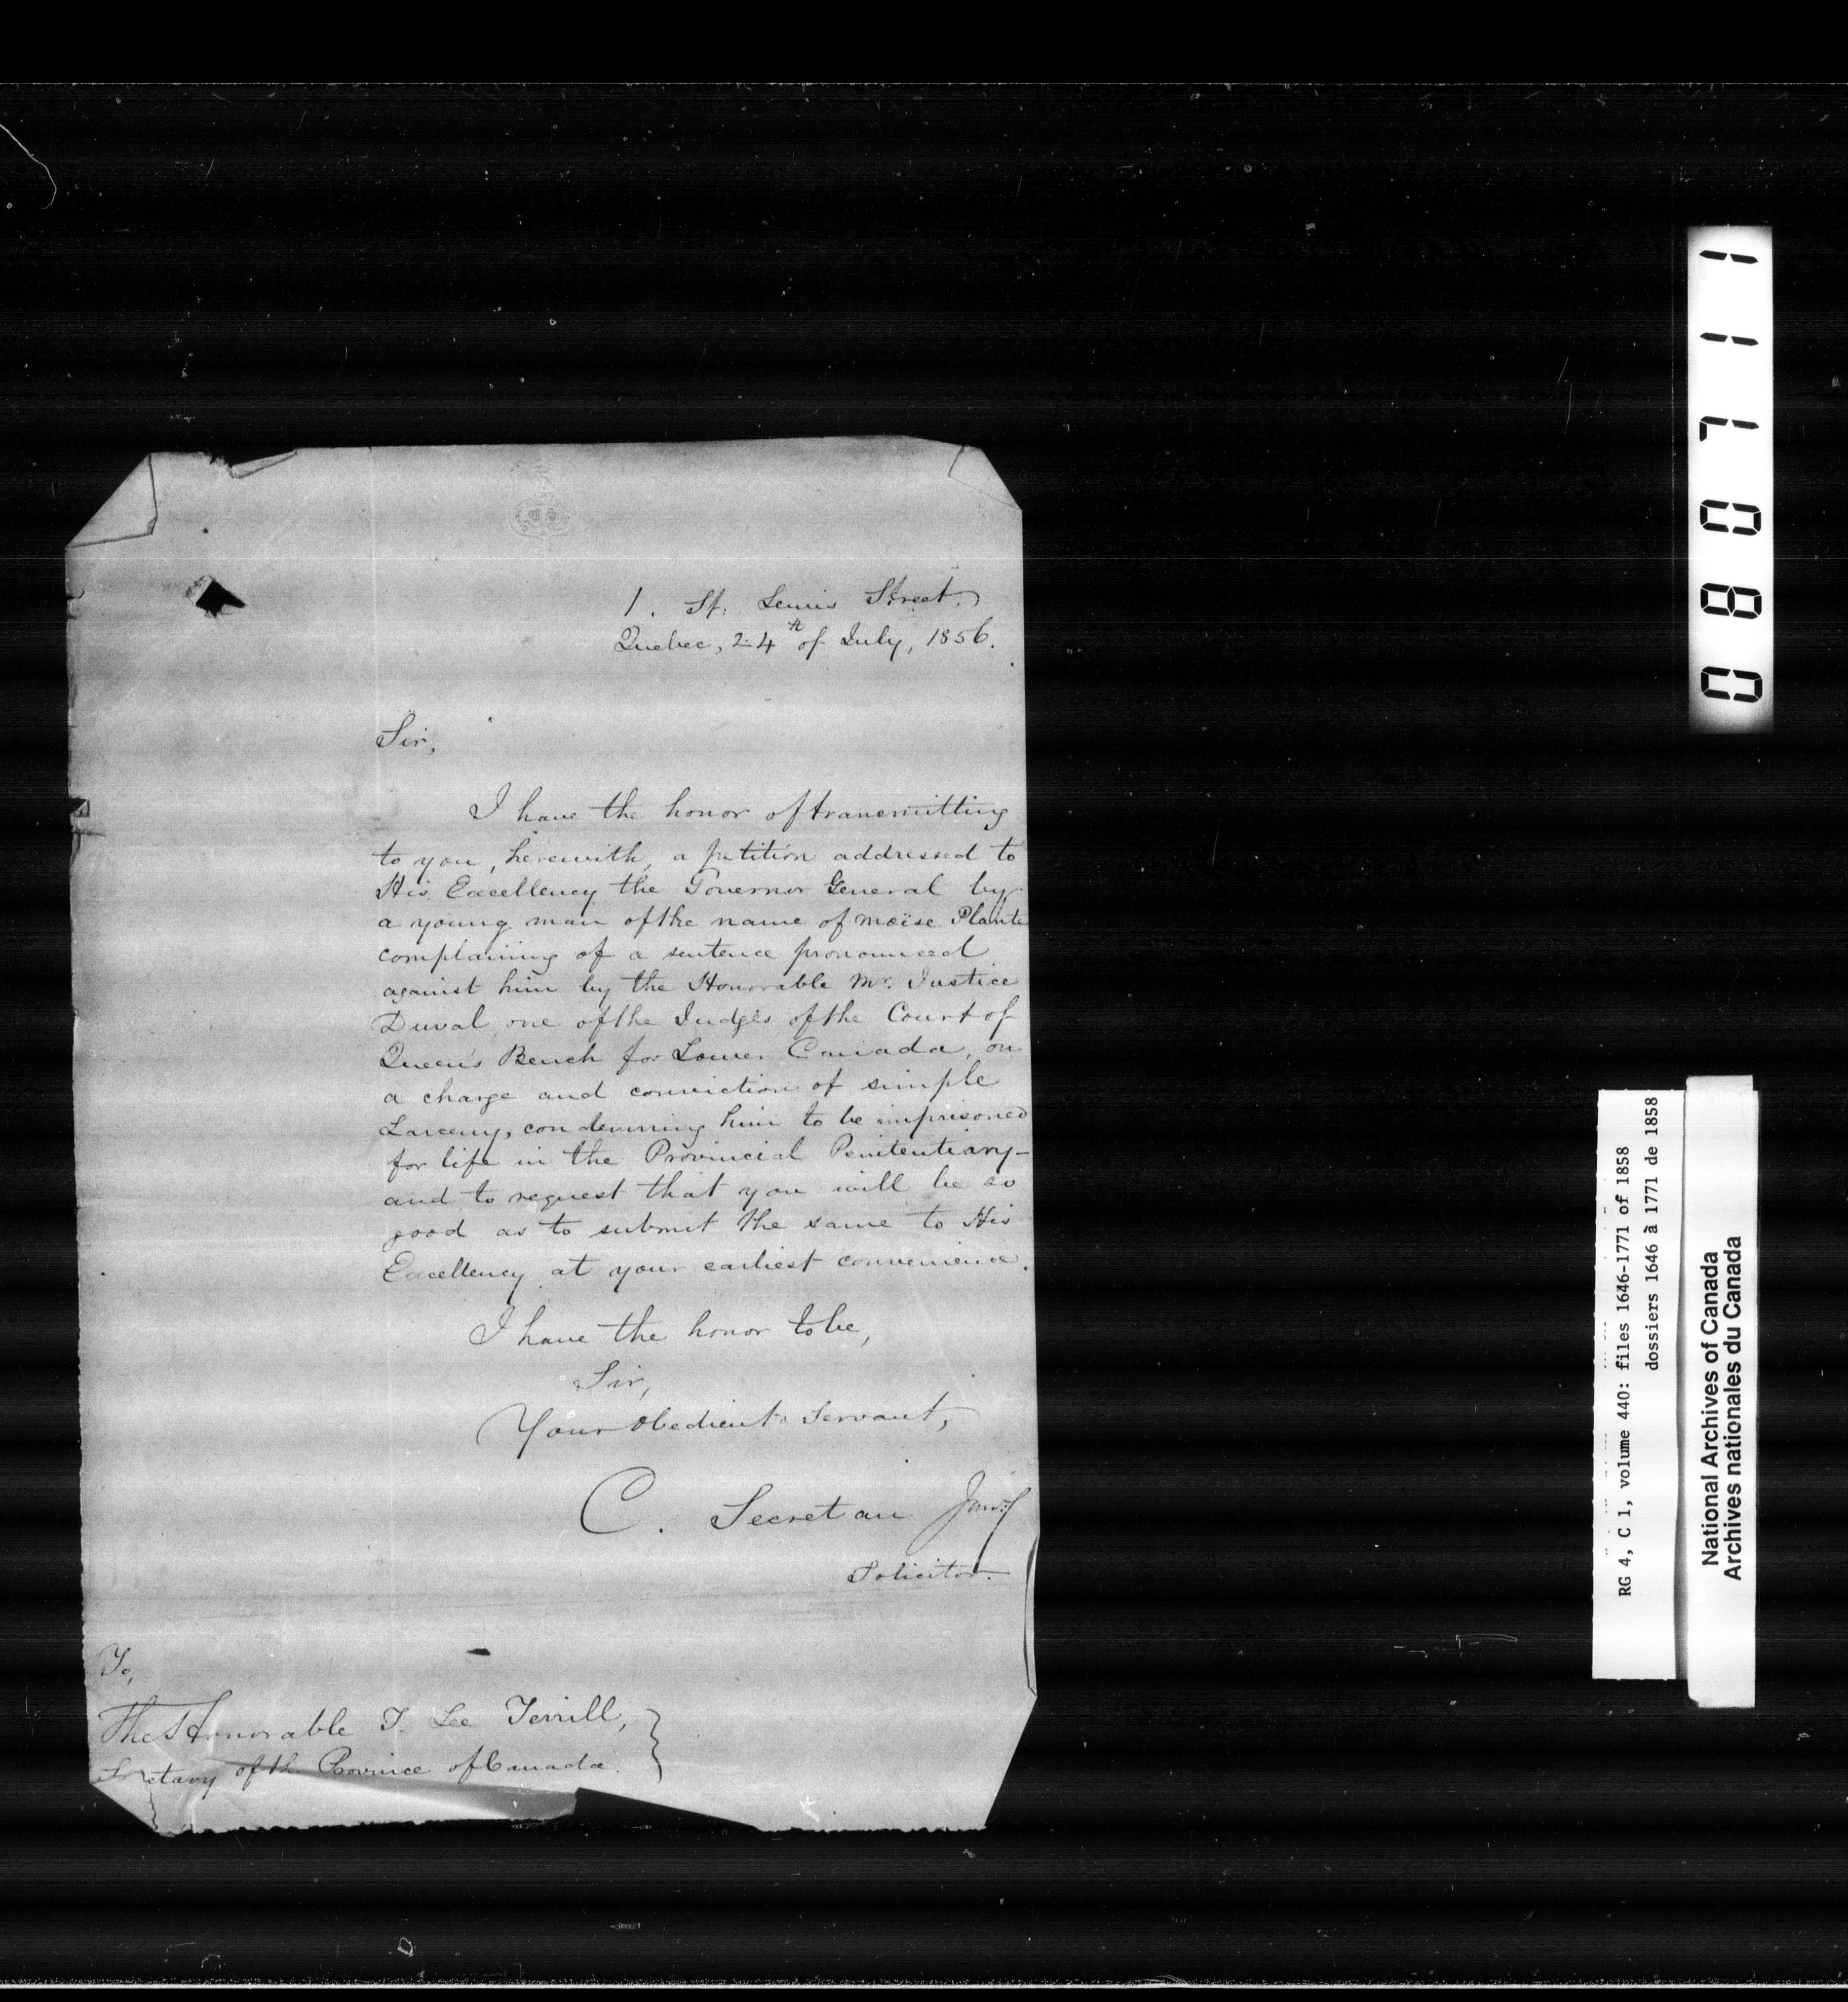 1. St. Lewis Street,
Quebec, 24th of July, 1856.
Sir,
I have the honor of transmitting
to you, herewith, a petition addressed to
His Excellency the Governor General by
a young man of the name of Moïse Plante
complaining of a sentence pronounced
against him by the Honorable Mr. Justice
Duval, one of the Judges of the Court of
Queen's Bench for Lower Canada, on
a charge and conviction of simple
Larceny, condemning him to be imprisoned
for life in the Provincial Penitentiary -
and to request that you will be so
good as to submit the same to His
Excellency at your earliest convenience.
I have the honor to be,
Sir,
Your obedient Servant,
C. Secretan Junr.
Solicitor.
To,
The Honorable T. Lee Terrill,
Secretary of the Province of Canada.
080711
RG 4, C 1, volume 440: files 1646-1771 of 1858
dossiers 1646 à 1771 de 1858
National Archives of Canada
Archives nationales du Canada